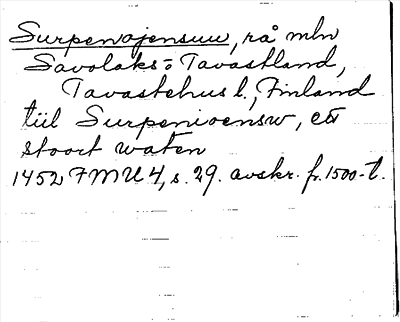 Surpenojensuu, rå mln
Savolaks - Tavastland,
Tavastehus l., Finland
tiil Surpenioensw, ett
stoort waten
1452 FMU 4, s. 29. avskr. fr. 1500-t.